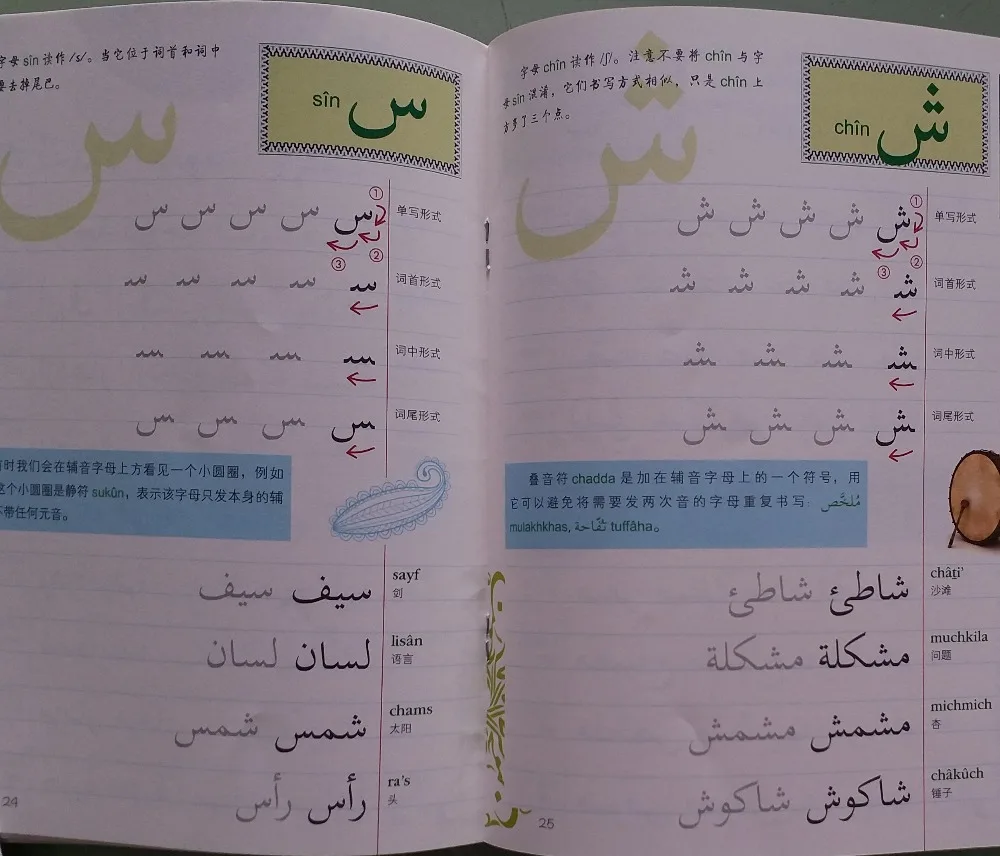 字母 sîn 读作 /s/。当它位于词首和词中
要去掉尾巴。
sîn س
س
① 
س س س س س 单写形式
② ③
سـ سـ سـ سـ سـ 词首形式
ـسـ ـسـ ـسـ ـسـ 词中形式
ـس ـس ـس ـس 词尾形式
有时我们会在辅音字母上方看见一个小圆圈，例如
这个小圆圈是静符 sukûn，表示该字母只发本身的辅
不带任何元音。
sayf
剑
سيف سيف
lisân
语言
لسان لسان
chams
太阳
شمس شمس
ra's
头
رأس رأس
24
字母 chîn 读作 /ʃ/。注意不要将 chîn 与字
母 sîn 混淆，它们书写方式相似，只是 chîn 上
方多了三个点。
chîn ش
ش
①
ش ش ش ش ش 单写形式
② ③
شـ شـ شـ شـ شـ 词首形式
ـشـ ـشـ ـشـ ـشـ 词中形式
ـش ـش ـش ـش 词尾形式
叠音符 chadda 是加在辅音字母上的一个符号，用
它可以避免将需要发两次音的字母重复书写：مُلخَّص
mulakhkhas, تُفّاحة tuffâha。
châṯi'
沙滩
شاطئ شاطئ
muchkila
问题
مشكلة مشكلة
michmich
杏
مشمش مشمش
châkûch
锤子
شاكوش شاكوش
25